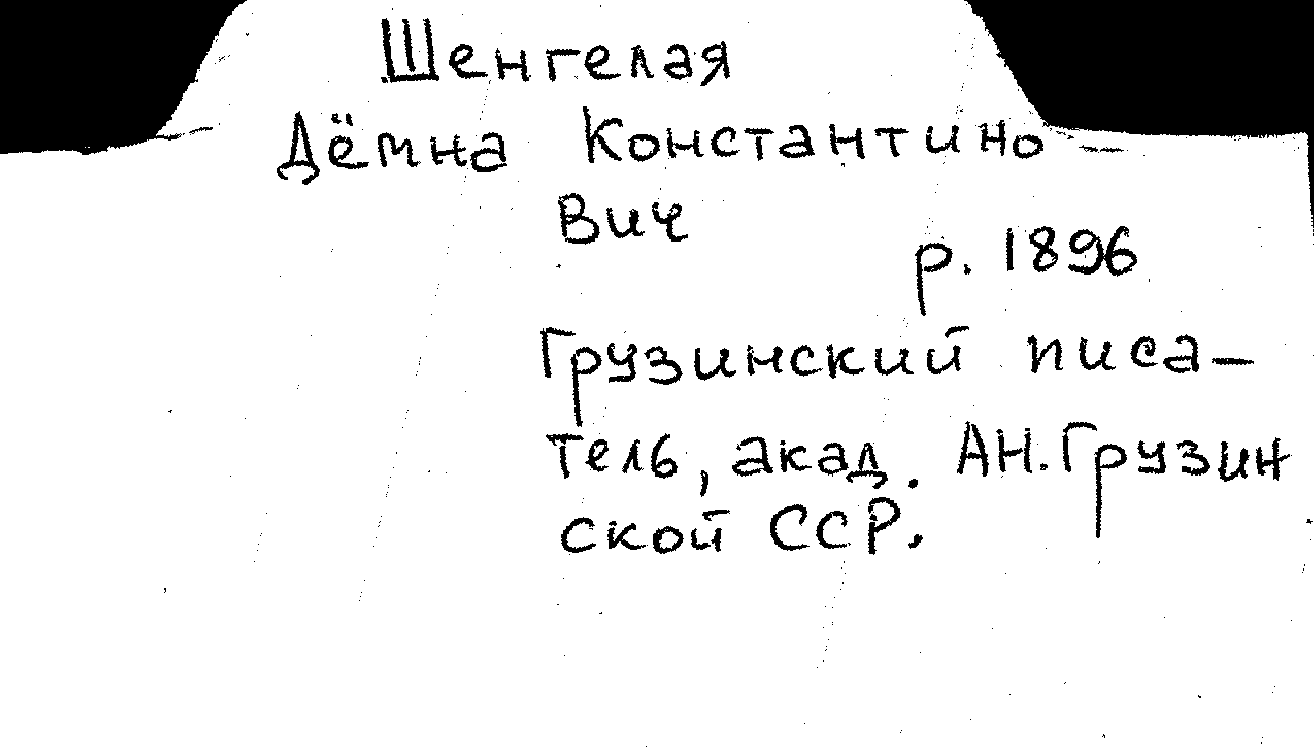 Шенгелая
Дёмна Константино-
вич
р. 1896
Грузинский писа-
тель, акад. АН.Грузин
ской ССР.